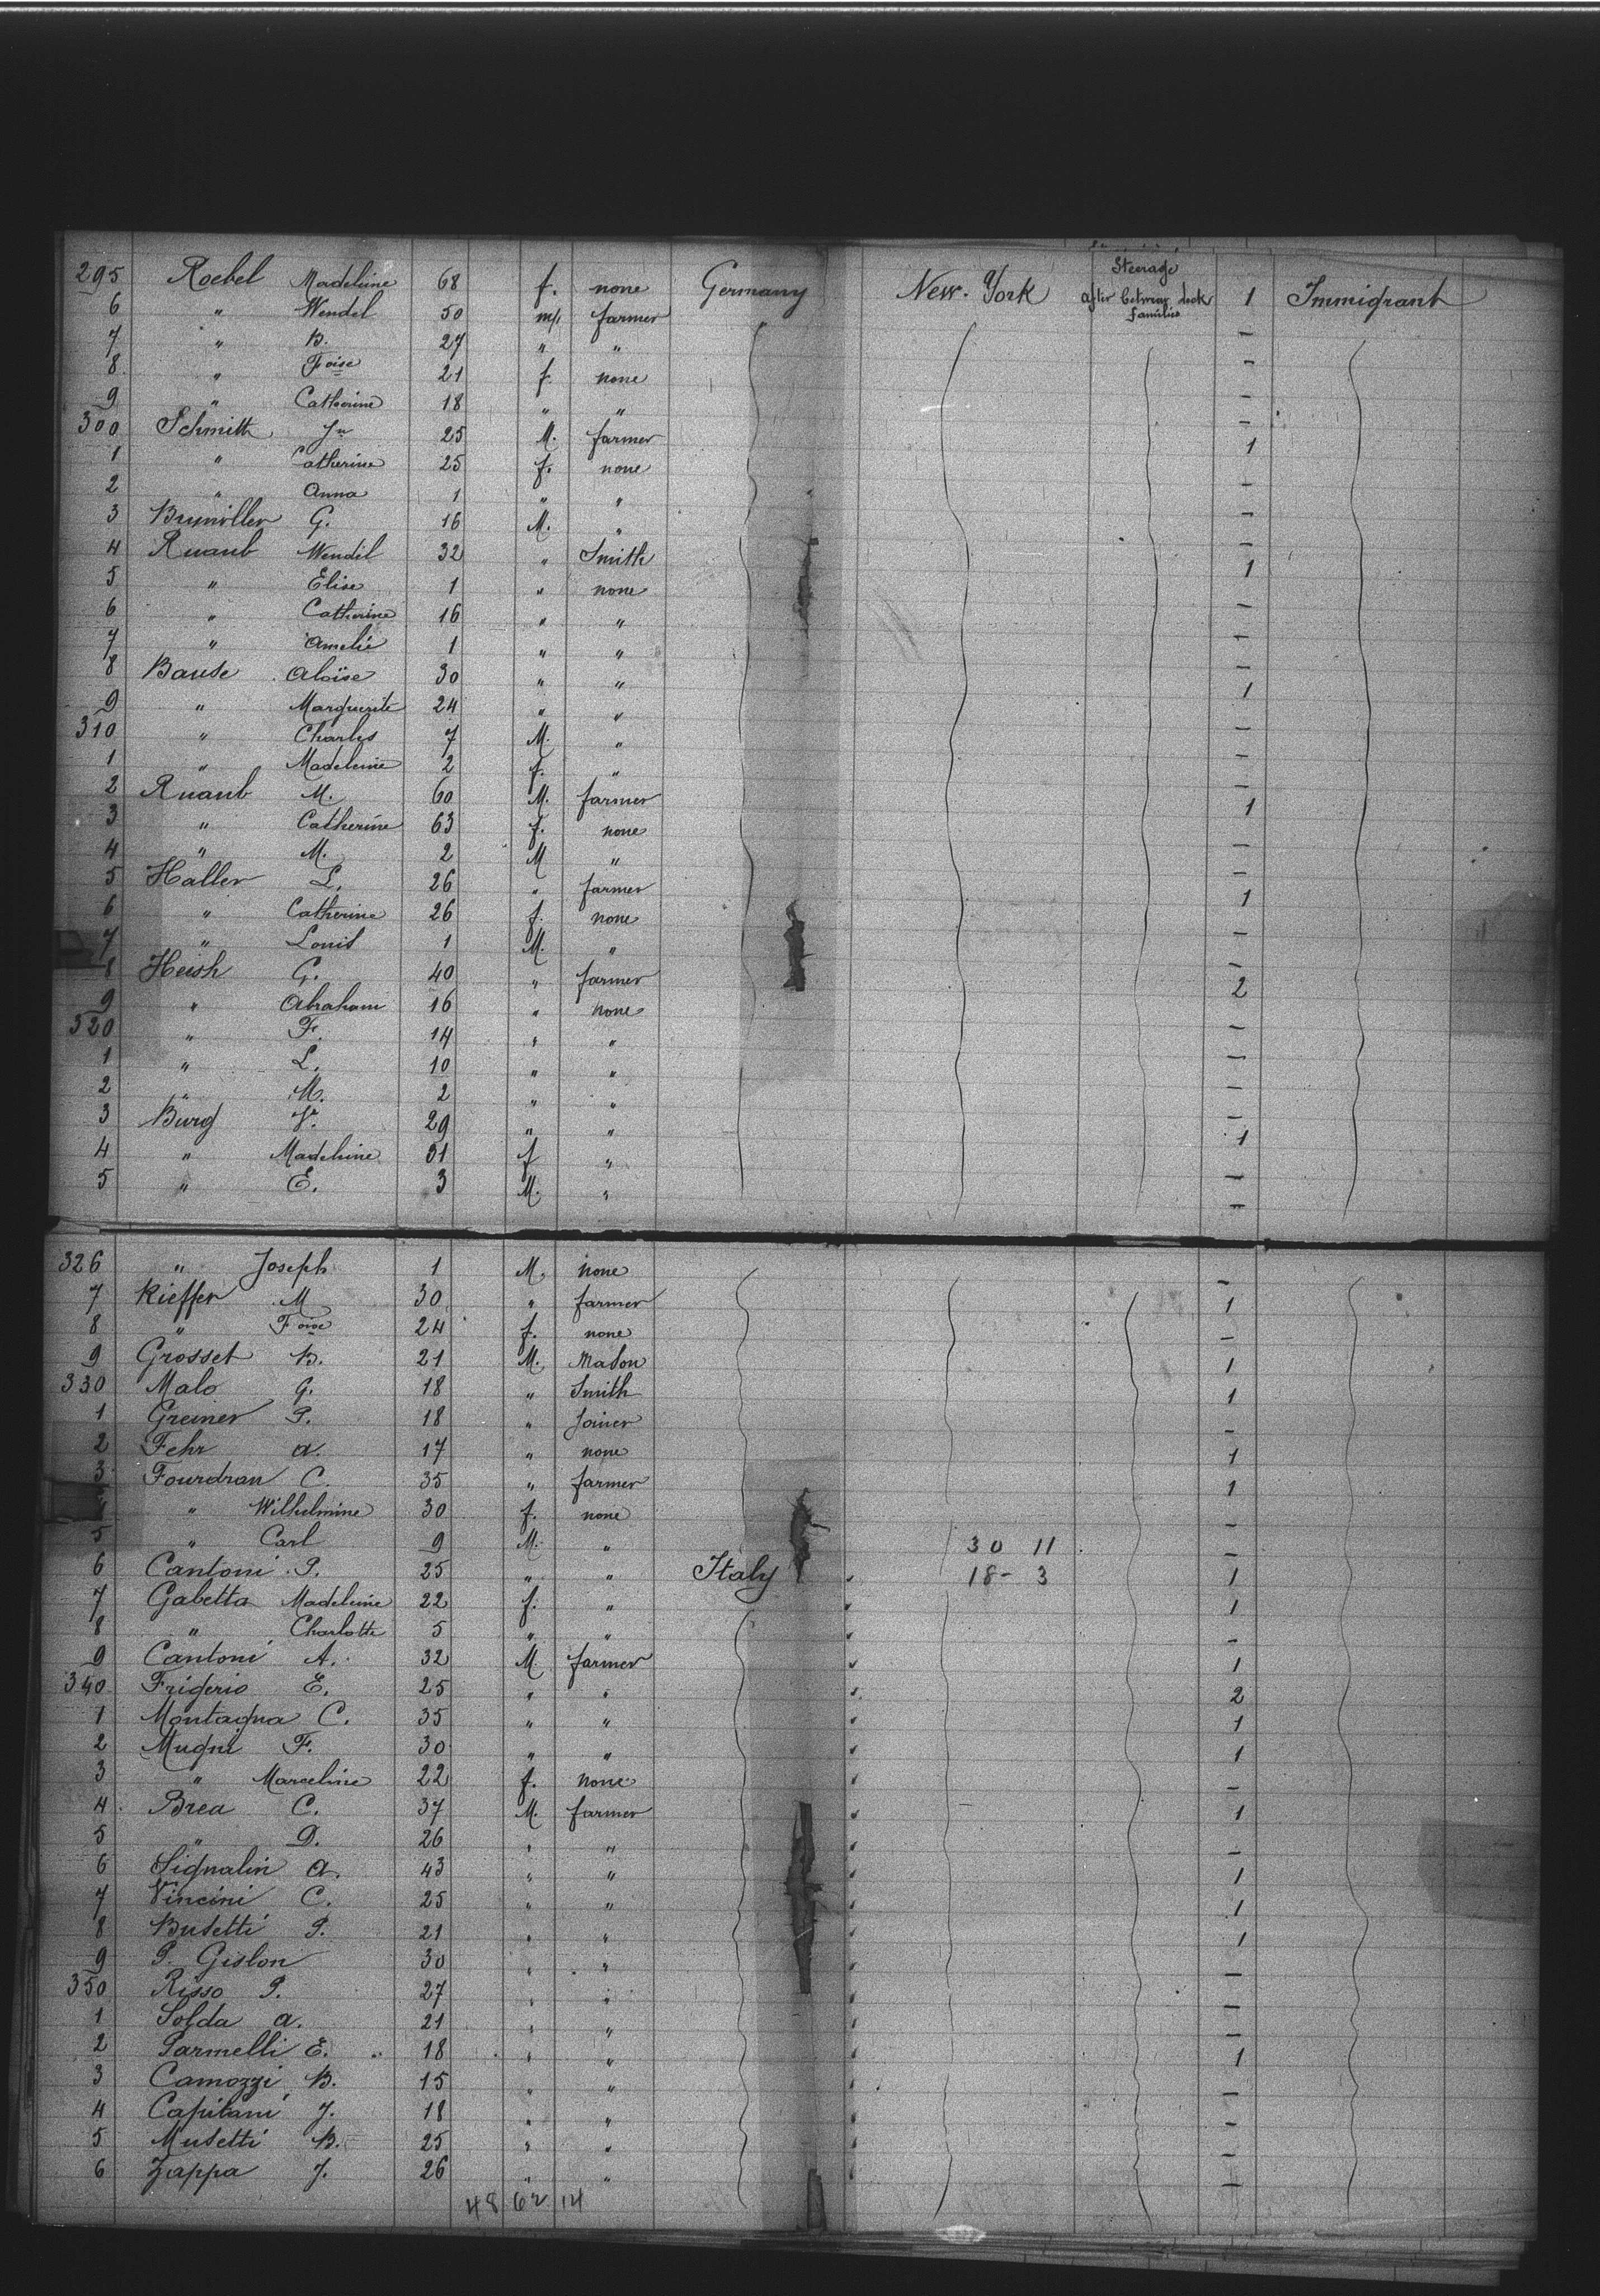 295 Roebel Madeleine 68 f. none Germany New-York Steerage after betwen deck families 1 Immigrant
6 " Wendel 50 m/. farmer —
7 " B. 27 " " —
8 " Foise 21 f. none —
9 " Catherine 18 " " —
300 Schmitt Jn 25 M. farmer 1
1 " Catherine 25 f. none —
2 " Anna 1 " " —
3 G. 16 M. " —
4 Ruaub Wendel 32 " Smith 1
5 " Elise 1 " none —
6 " Catherine 16 " " —
7 " Amelie 1 " " —
8 Bause Aloïse 30 " " 1
9 " Marguerite 24 " " —
310 " Charles 7 M. " —
1 " Madeleine 2 f. " —
2 Ruaub M. 60 M. farmer 1
3 " Catherine 63 f. none —
4 " M. 2 M " —
5 Haller L. 26 " farmer 1
6 " Catherine 26 f. none —
7 " Louis 1 M. " —
8 Heish G. 40 " farmer 2
9 " Abraham 16 " none —
320 " F. 14 " " —
1 " L. 10 " " —
2 " M. 2 " " —
3 Burg Jh. 29 " " 1
4 " Madeleine 31 f " —
5 " E. 3 M. " —
326 " Joseph 1 M. none —
7 Kieffer M 30 " farmer 1
8 " Foise 24 f. none —
9 Grosset B. 21 M. Mason 1
330 Malo G. 18 " Smith 1
1 Greiner P. 18 " Joiner —
2 Fehr A. 17 " none 1
3 Fourdran C. 35 " farmer 1
" Wilhelmine 30 f. none —
5 " Carl 9 M. " 30 11 —
6 Cantoni P. 25 " " Italy 18- 3 1
7 Gabetta Madeleine 22 f. " 1
8 " Charlotte 5 " " —
9 Cantoni A. 32 M farmer 1
340 Frigerio E. 25 " " 2
1 Montagna C. 35 " " 1
2 Mugni F. 30 " " 1
3 " Marceline 22 f. none —
4 Brea C. 37 M. farmer 1
5 " D. 26 " " —
6 Signalin A. 43 " " 1
7 Vincini C. 25 " " 1
8 Busetti P. 21 " " 1
9 P. Gislon 30 " " —
350 Risso P. 27 " " —
1 Solda A. 21 " " —
2 Parmelli E. 18 " " 1
3 Camozzi B. 15 " " —
4 Capitani J. 18 " " —
5 Musetti B. 25 " " —
6 Zappa J. 26 " " —
48 62 14